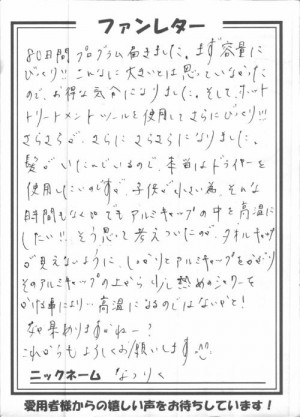 ファンレター
80日間プログラム届きました。まず容量に
びっくり!! こんなに大きいとは思っていなかった
ので、お得な気分になりました。そして、ホット
トリートメントツールを使用してさらにびっくり!!
さらさらが、さらにさらさらになりました。
髪がいたんでいるので、本当はドライヤーを
使用したいのですが、子供が小さい為、そんな
時間もなく…でもアルミキャップの中を高温に
したい!! そう思って考えついたのが、タオルキャップ
が見えないように、しっかりとアルミキャップをかぶり
そのアルミキャップの上から少し熱めのシャワーを
かける事により…高温になるのではないかと!
効果ありますかねー?
これからもよろしくお願いします
ニックネーム なつりく
愛用者様からの嬉しい声をお待ちしています!